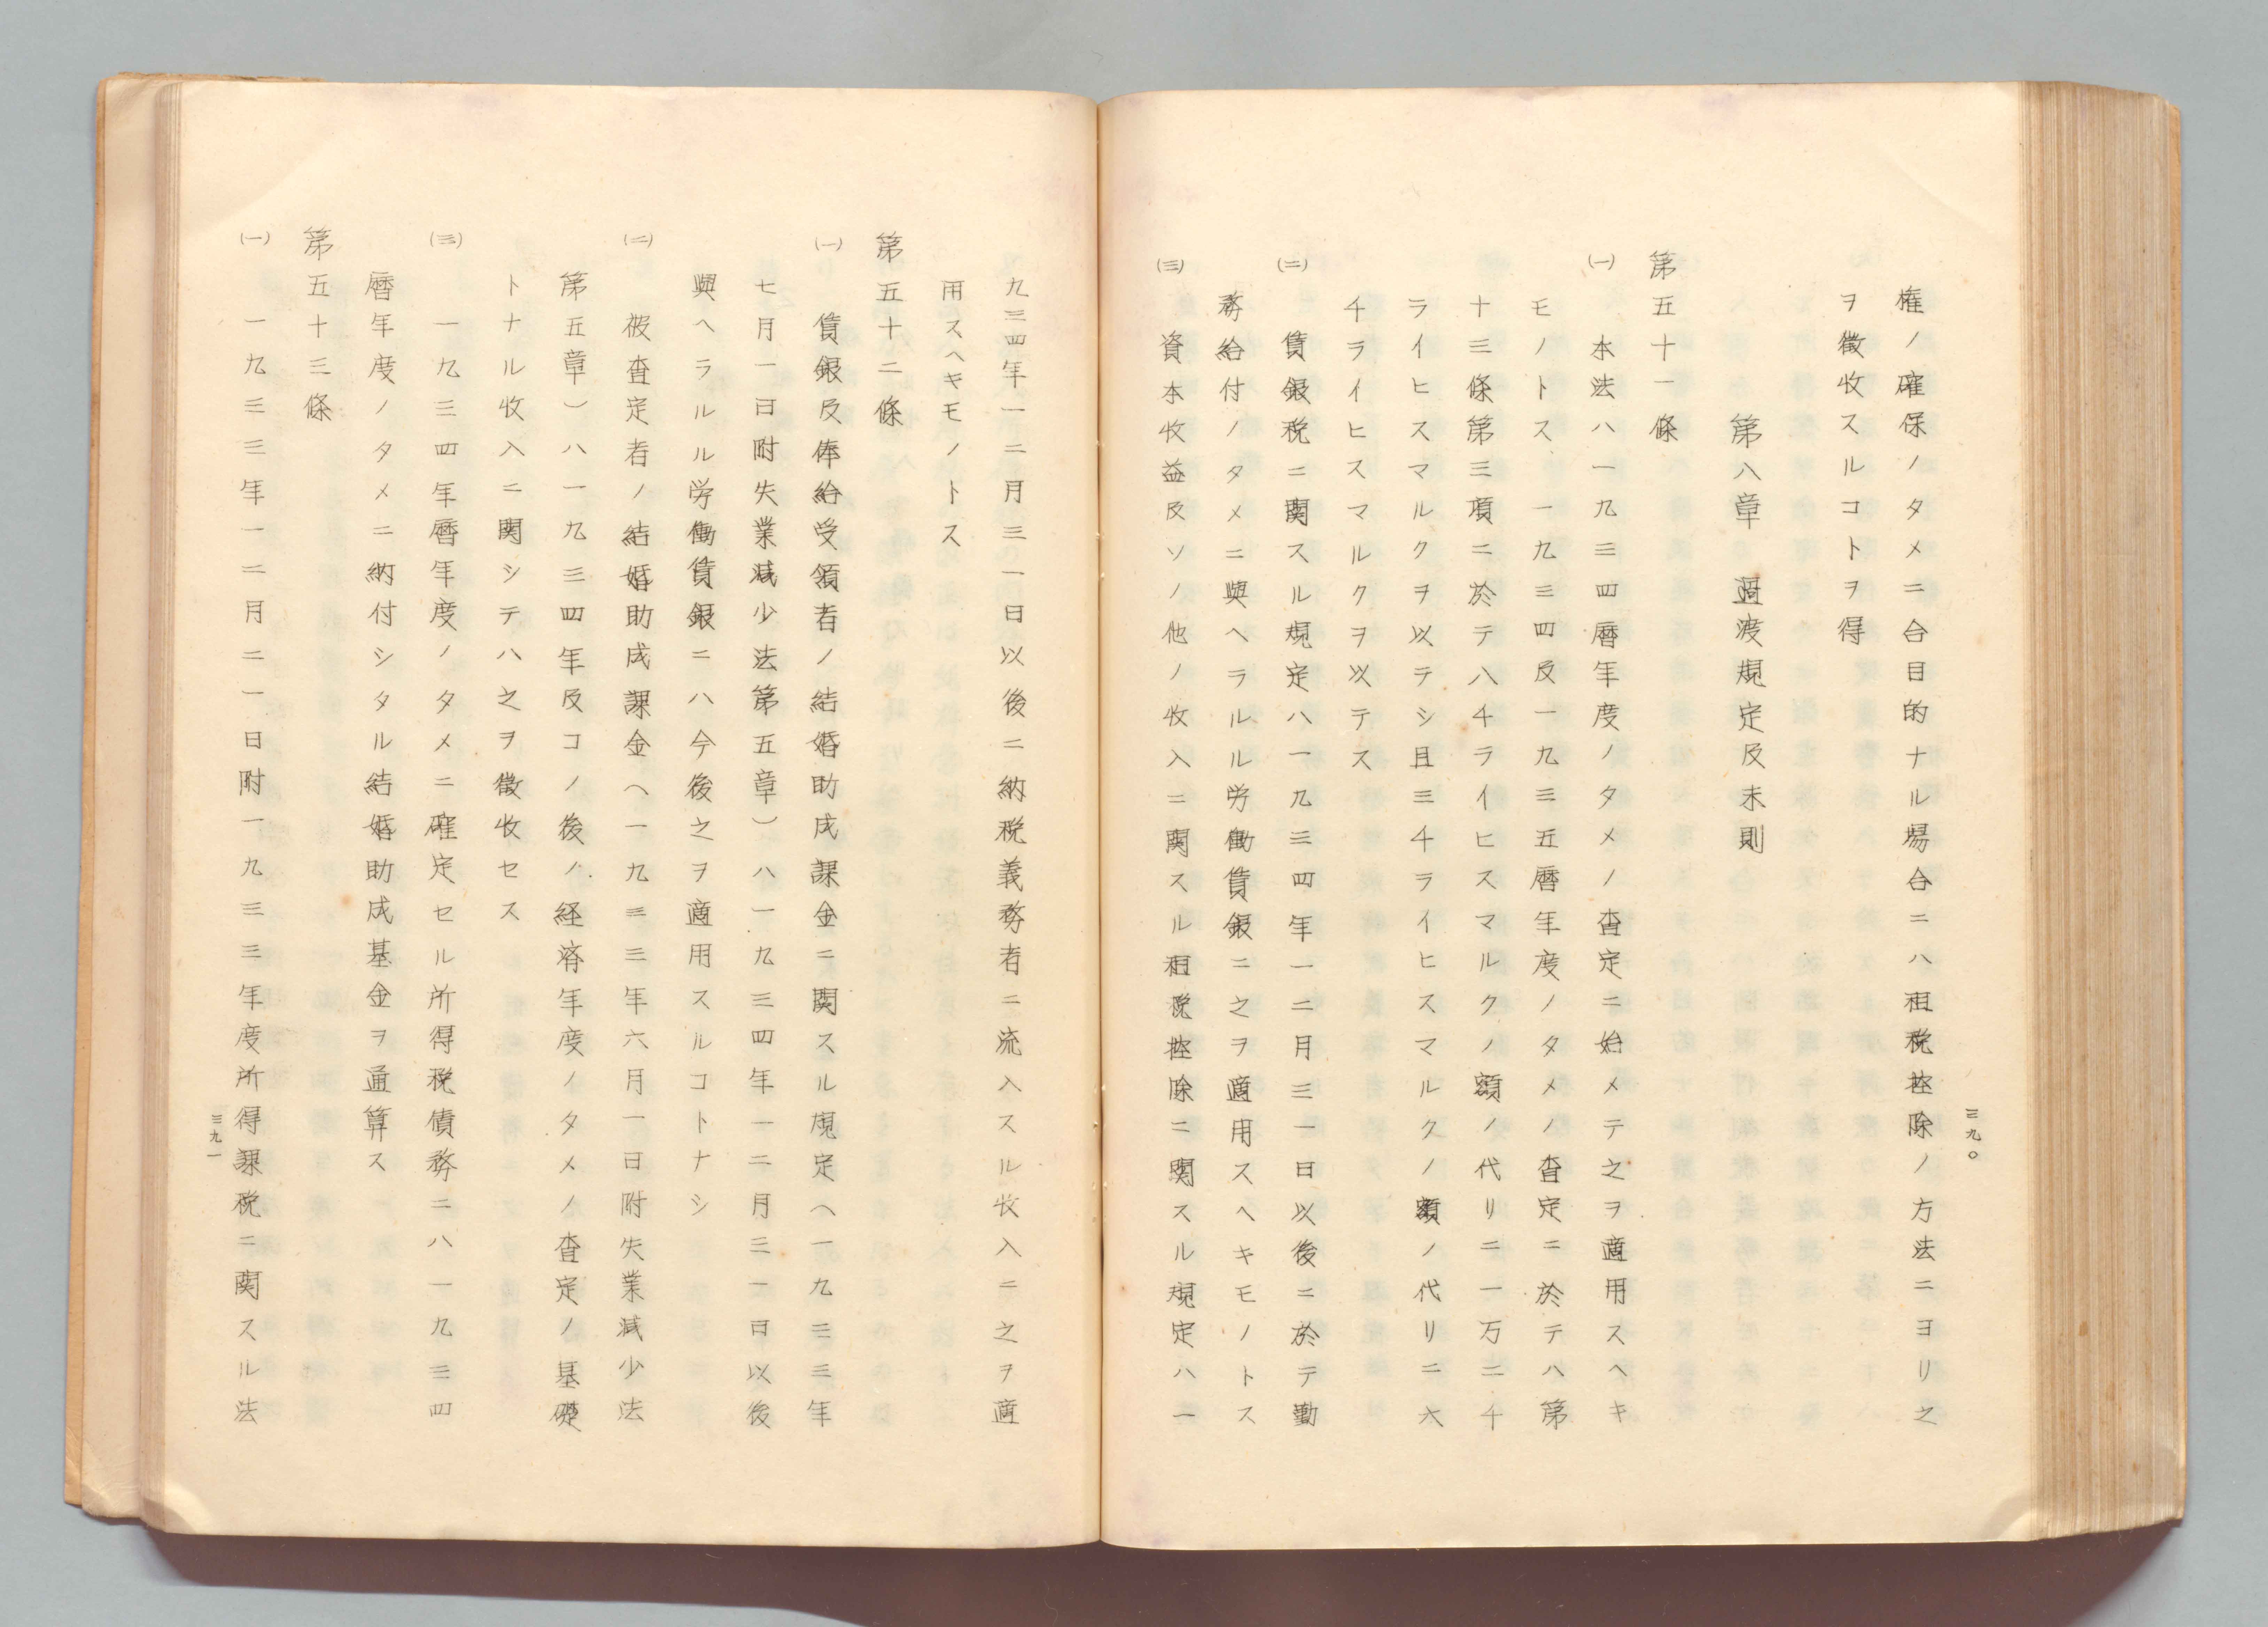 権ノ確保ノタメニ合目的ナル場合ニハ租税控除ノ方法ニヨリ之
ヲ徴收スルコトヲ得
第八章　過渡規定及末則
第五十一條
(一)　本法ハ一九三四暦年度ノタメノ査定ニ始メテ之ヲ適用スヘキ
モノトス　一九三四及一九三五暦年度ノタメノ査定ニ於テハ第
十三條第三項ニ於テ八千ライヒスマルクノ額ノ代リニ一万二千
ライヒスマルクヲ以テシ且三千ライヒスマルクノ額ノ代リニ六
千ライヒスマルクヲ以テス
(二)　賃銀税ニ関スル規定ハ一九三四年一二月三一日以後ニ於テ勤
務給付ノタメニ與ヘラルル労働賃銀ニ之ヲ適用スヘキモノトス
(三)　資本收益及ソノ他ノ收入ニ関スル租税控除ニ関スル規定ハ一
三九〇
九三四年一二月三一日以後ニ納税義務者ニ流入スル收入ニ之ヲ適
用スヘキモノトス
第五十二條
(一)　賃銀及俸給受領者ノ結婚助成課金ニ関スル規定（一九三三年
七月一日附失業減少法第五章）ハ一九三四年一二月三一日以後
與ヘラルル労働賃銀ニハ今後之ヲ適用スルコトナシ
(二)　被査定者ノ結婚助成課金（一九三三年六月一日附失業減少法
第五章）ハ一九三四年及コノ後ノ経済年度ノタメノ査定ノ基礎
トナル收入ニ関シテハ之ヲ徴收セス
(三)　一九三四年暦年度ノタメニ確定セル所得税債務ニハ一九三四
暦年度ノタメニ納付シタル結婚助成基金ヲ通算ス
第五十三條
(一)　一九三三年一二月二一日附一九三三年度所得課税ニ関スル法
三九一